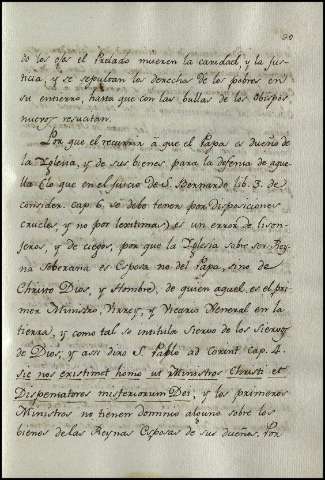 90
do los ojos el Prelado mueren la caridad, y la jus-
ticia, y se sepultan los derechos de los pobres en
su entierro, hasta que con las bullas de los obispos
nuevos resucitan.
Por que el recurrir à que el Papa es dueño de
la Iglesia, y de sus bienes para la defensa de aque-
llo (lo que en el juicio de S. Bernardo lib. 3. de
consider. cap. 6. se debe tener por disposiciones
crueles, y no por legitimas) es un error de lison-
jeros, y de ciegos, por que la Iglesia sobre ser Rey-
na Soberana es Esposa no del Papa, sino de
Christo Dios, y Hombre, de quien aquel es el pri-
mer Ministro, Virrey, y Vicario General en la
tierra, y como tal se intitula Siervo de los Siervos
de Dios, y assi dixo S. Pablo ad Corint. cap. 4.
Sic nos existimet homo ut Ministros Christi et
Dispensatores misteriorum Dei, y los primeros
Ministros no tienen dominio alguno sobre los
bienes de las Reynas Esposas de sus dueños. Por